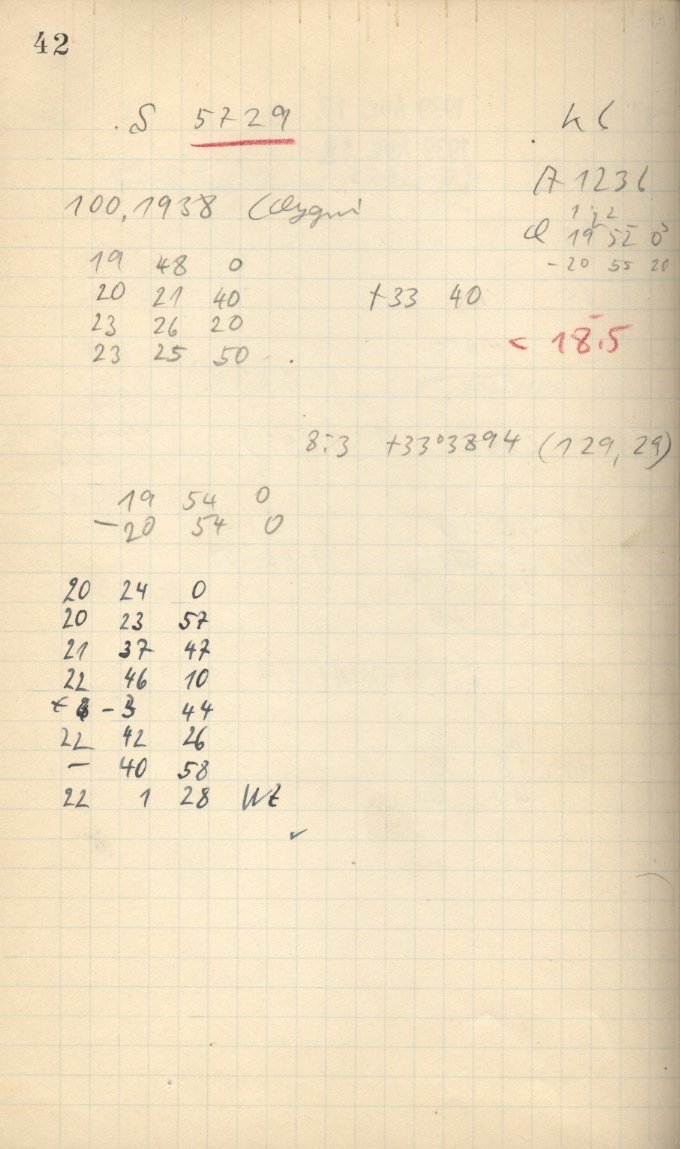 42
S 5729
100,1938 Cygni
19 48 0
20 21 40 +33 40
23 26 20
23 25 50
A 1236
19 52 0
-20 55 20
< 18.5
8.3 +33°3894 (129, 29)
19 54 0
-20 54 0
20 24 0
20 23 57
21 37 47
22 46 10
- 3 44
22 42 26
- 40 58
22 1 28 WZ